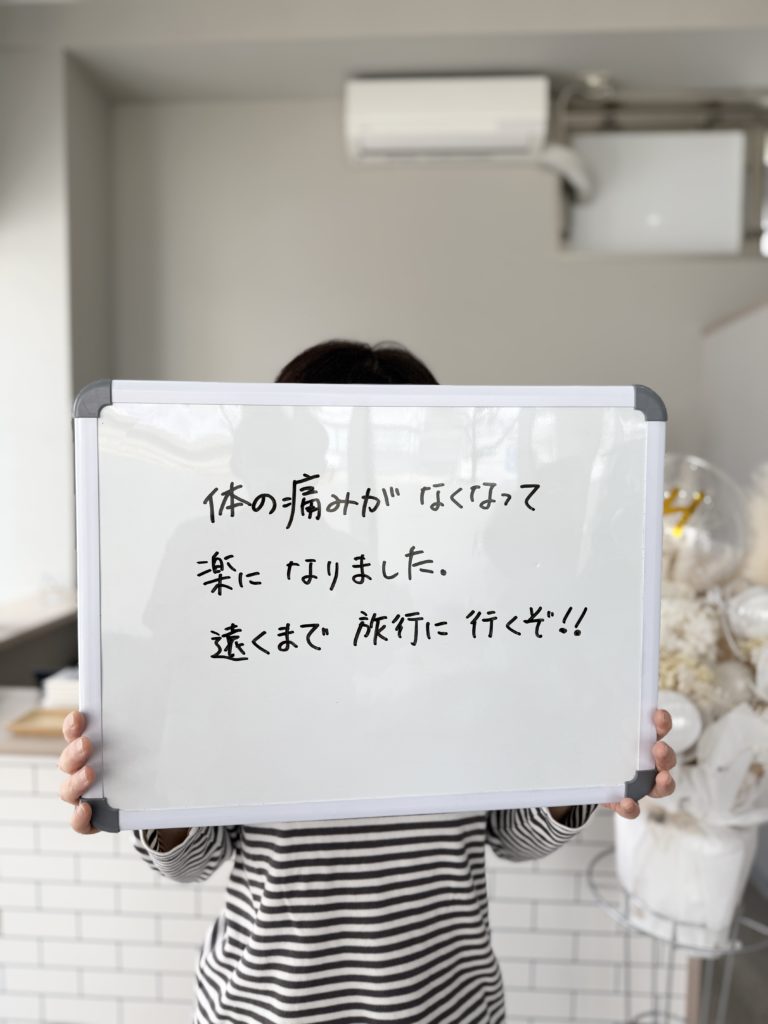 体の痛みが なくなって
楽に なりました.
遠くまで 旅行に 行くぞ!!